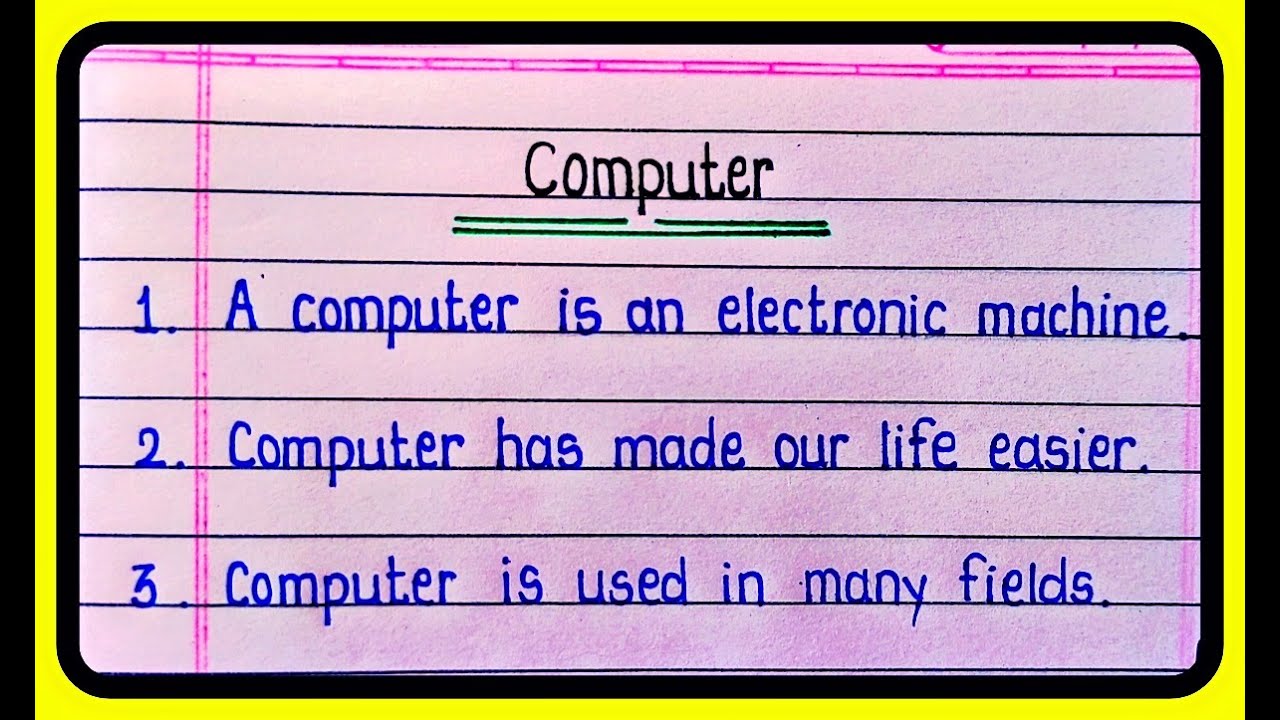 Computer
1. A computer is an electronic machine.
2. Computer has made our life easier.
3. Computer is used in many fields.